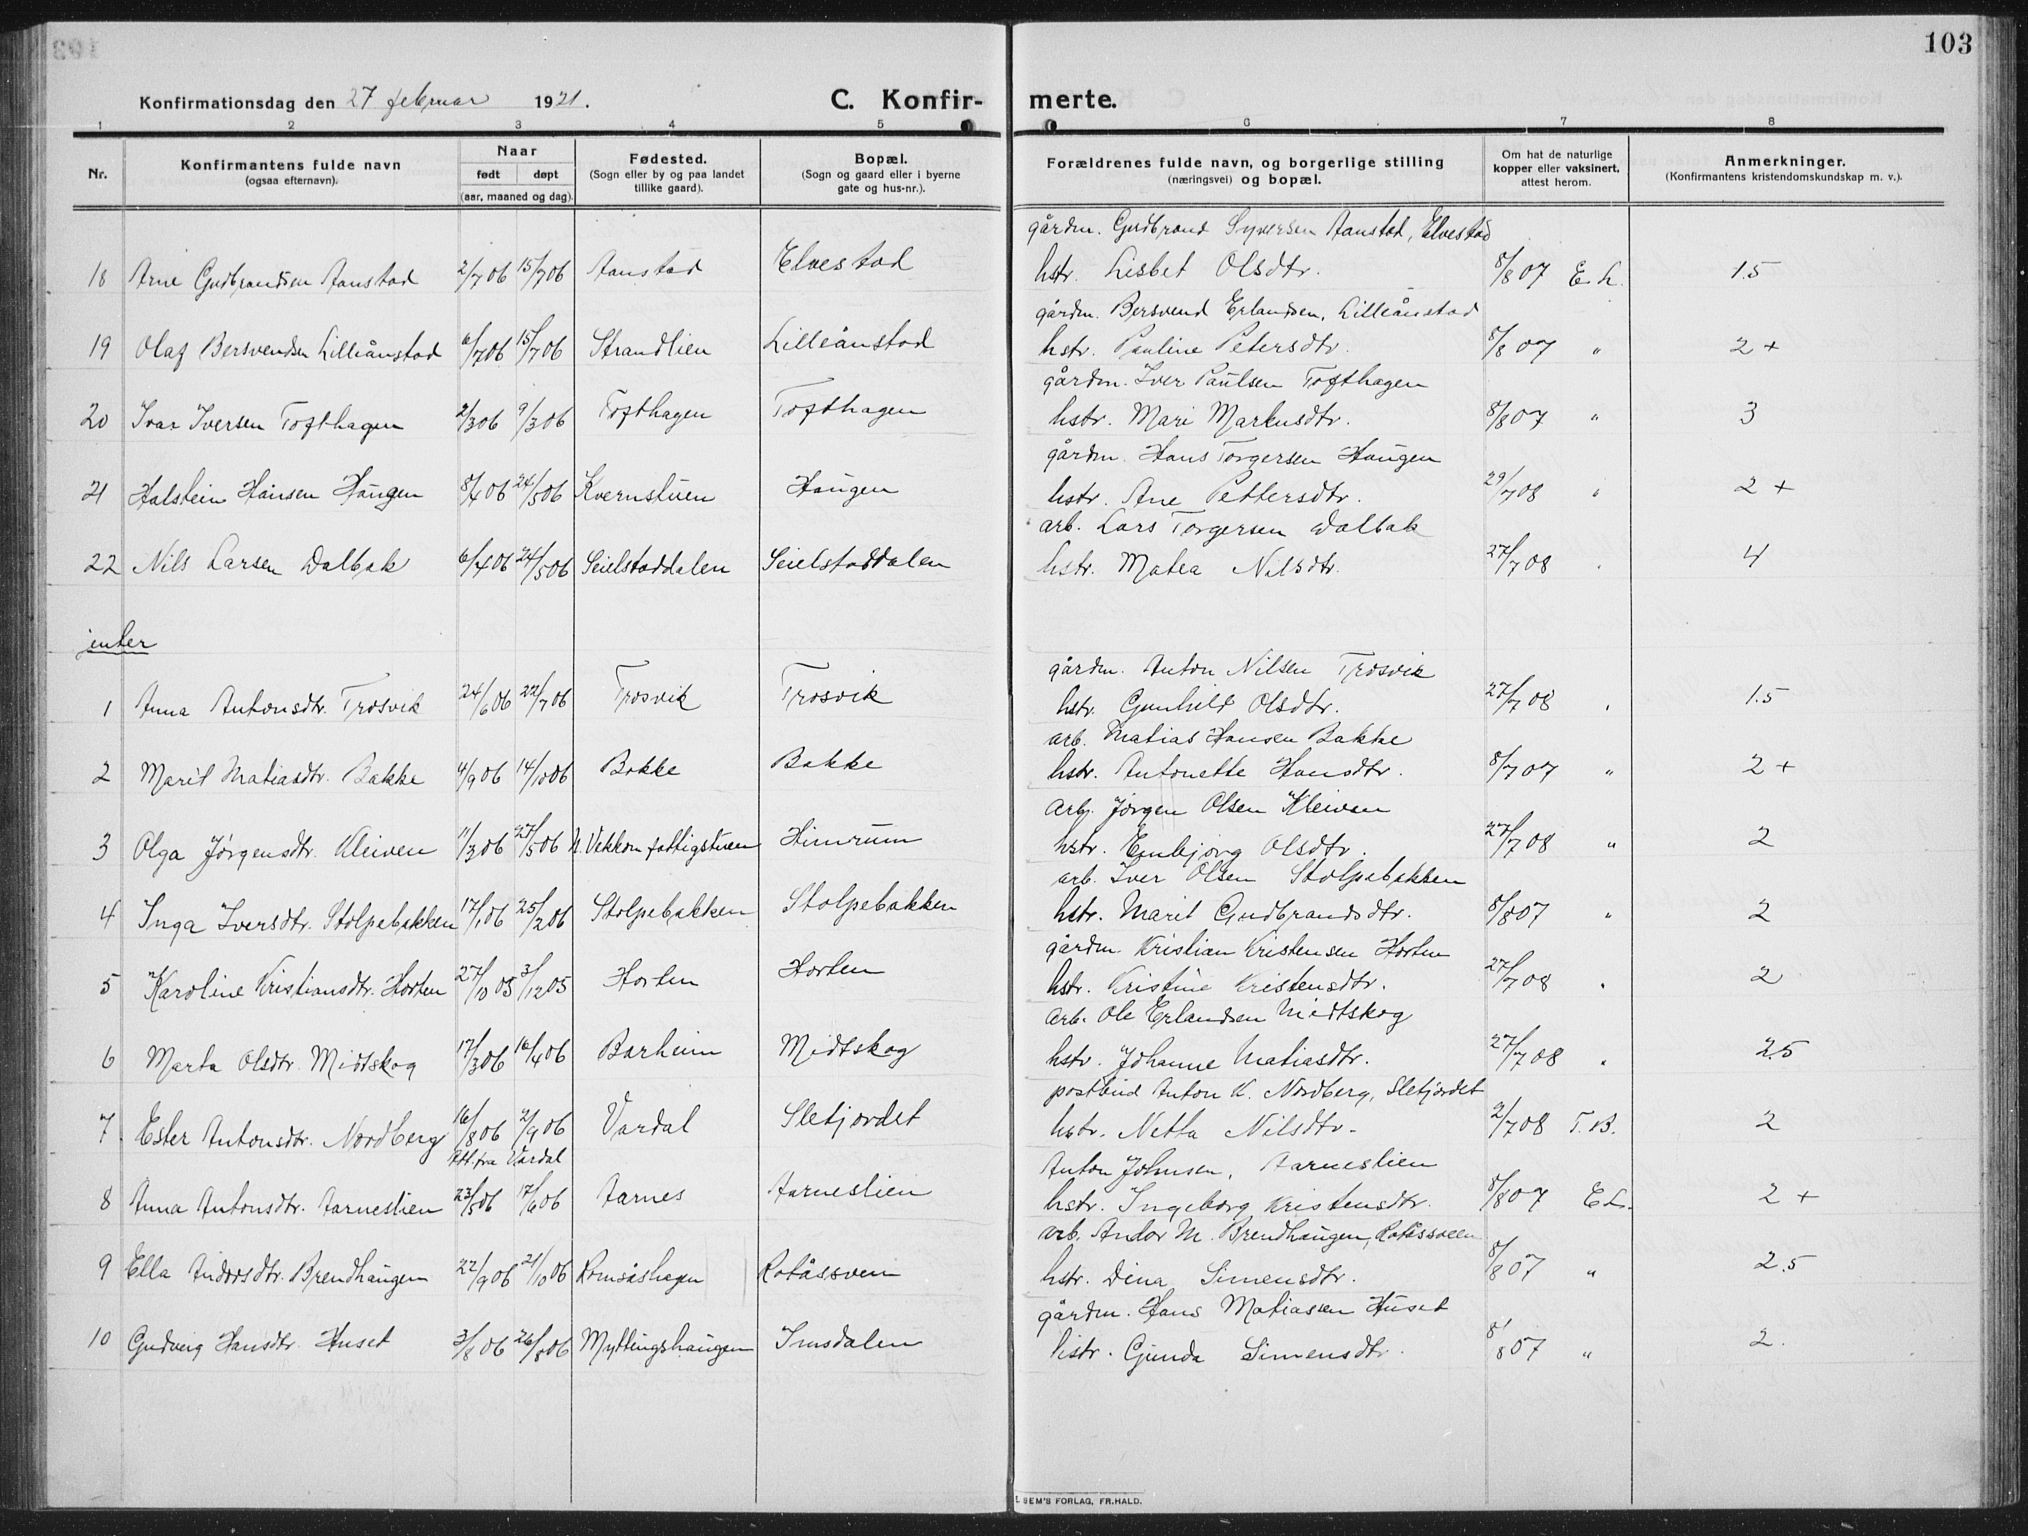 103
Konfirmationsdag den 27 februar 1921.
C. Konfirmerte.
1 2 3 4 5 6 7 8
Nr.
Konfirmantens fulde navn
(ogsaa efternavn).
Naar
født døpt
(aar, maaned og dag).
Fødested.
(Sogn eller by og paa landet
tillike gaard).
Bopæl.
(Sogn og gaard eller i byerne
gate og hus-nr.).
Forældrenes fulde navn, og borgerlige stilling
(næringsvei) og bopæl.
Om hat de naturlige
kopper eller vaksinert,
attest herom.
Anmerkninger.
(Konfirmantens kristendomskundskap m. v.).
gårdm. Gudbrand Syversen Aanstad, Elvestad
18 Arne Gudbrandsen Aanstad 2/7 06 15/7 06 Aanstad Elvestad hstr. Lisbet Olsdtr. 8/8 07 E. L. 1.5
gårdm. Bersvend Erlandsen, Lilleånstad
19 Olaf Bersvendsen Lilleånstad 6/7 06 15/7 06 Strandlien Lilleånstad hstr. Pauline Petersdtr. 8/8 07 " 2 +
gårdm. Iver Paulsen Tofthagen
20 Ivar Iversen Tofthagen 2/3 06 9/3 06 Tofthagen Tofthagen hstr. Mari Markusdtr. 8/8 07 " 3
gårdm. Hans Torgersen Haugen
21 Halstein Hansen Haugen 8/4 06 24/5 06 Kvernstuen Haugen hstr. Ane Pettersdtr. 29/7 08 " 2 +
arb. Lars Torgersen Dalbak
22 Nils Larsen Dalbak 6/4 06 24/5 06 Seielstaddalen Seielstaddalen hstr. Matea Nilsdtr. 27/7 08 " 4
jenter
gårdm. Anton Nilsen Trosvik
1 Anna Antonsdtr. Trosvik 24/6 06 22/7 06 Trosvik Trosvik hstr. Gunhild Olsdtr. 27/7 08 " 1.5
arb. Matias Hansen Bakke
2 Marit Matiasdtr. Bakke 4/9 06 14/10 06 Bakke Bakke hstr. Antonette Hansdtr. 8/7 07 " 2 +
arb. Jørgen Olsen Kleiven
3 Olga Jørgensdtr. Kleiven 11/3 06 27/5 06 N. Vekkom fattigstuen Himrum hstr. Embjørg Olsdtr. 27/7 08 " 2
arb. Iver Olsen Stolpebakken
4 Inga Iversdtr. Stolpebakken 17/1 06 25/2 06 Stolpebakken Stolpebakken hstr. Marit Gudbrandsdtr. 8/8 07 " 2
gårdm Kristian Kristensen Horten
5 Karoline Kristiansdtr. Horten 27/10 05 3/12 05 Horten Horten hstr. Kristine Kristensdtr. 27/7 08 " 2
arb. Ole Erlandsen Midtskog
6 Marta Olsdtr. Midtskog 17/3 06 16/4 06 Barheim Midtskog hstr. Johanne Matiasdtr. 27/7 08 " 2.5
postbud Anton K. Nordberg, Sletjordet
7 Ester Antonsdtr. Nordberg 16/8 06 2/9 06 Vardal Sletjordet hstr. Netta Nilsdtr. 2/7 08 T. B. 2
Att. fra Vardal
Anton Johnsen, Aarneslien
8 Anna Antonsdtr. Aarneslien 23/5 06 17/6 06 Aarnes Aarneslien hstr. Ingeborg Kristensdtr. 8/8 07 E L. 2 +
arb. Andor M. Brendhaugen, Rotåssveen
9 Ella Andorsdtr. Brendhaugen 22/9 06 21/10 06 Romsåshagen Rotåssvein hstr. Dina Simensdtr. 8/8 07 " 2.5
gårdm. Hans Matiassen Huset
10 Gudveig Hansdtr. Huset 3/8 06 26/8 06 Myttingshaugen Imsdalen hstr. Gunda Simensdtr. 8/8 07 " 2.
SEM'S FORLAG, FR.HALD.